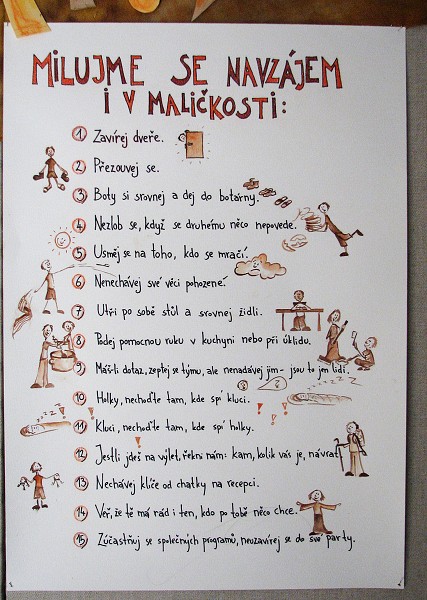 MILUJME SE NAVZÁJEM
I V MALIČKOSTI:
1 Zavírej dveře.
2 Přezouvej se.
3 Boty si srovnej a dej do botárny.
4 Nezlob se, když se druhému něco nepovede.
5 Usměj se na toho, kdo se mračí.
6 Nenechávej své věci pohozené.
7 Utři po sobě stůl a srovnej židli.
8 Podej pomocnou ruku v kuchyni nebo při úklidu.
9 Máš-li dotaz, zeptej se týmu, ale nenadávej jim - jsou to jen lidi.
10 Holky, nechoďte tam, kde spí kluci.
11 Kluci, nechoďte tam, kde spí holky.
12 Jestli jdeš na výlet, řekni nám: kam, kolik vás je, návrat.
13 Nechávej klíče od chatky na recepci.
14 Věř, že tě má rád i ten, kdo po tobě něco chce.
15 Zúčastňuj se společných programů, neuzavírej se do své party.